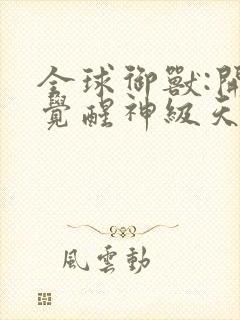 全球御獸:開
覺醒神級天
風雲動